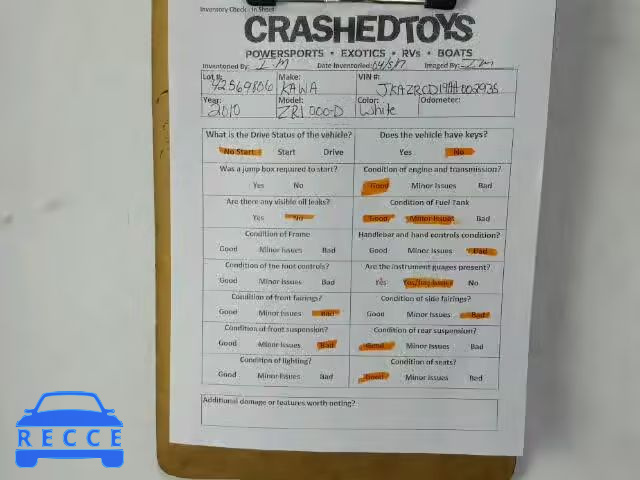 Inventory Check - In Sheet
CRASHEDTOYS
POWERSPORTS • EXOTICS • RVs • BOATS
Inventoried By: I.M Date Inventoried: Imaged By: I.M
Lot #: 42569806 Make: KAWA VIN #:
Year: 2010 Model: ZR1000-D Color: White Odometer:
What is the Drive Status of the vehicle? Does the vehicle have keys?
No Start Start Drive Yes No
Was a jump box required to start? Condition of engine and transmission?
Yes No Good Minor Issues Bad
Are there any visible oil leaks? Condition of Fuel Tank
Yes No Good Minor Issues Bad
Condition of Frame Handlebar and hand controls condition?
Good Minor Issues Bad Good Minor Issues Bad
Condition of the foot controls? Are the instrument guages present?
Good Minor Issues Bad Yes Yes/has issues No
Condition of front fairings? Condition of side fairings?
Good Minor Issues Bad Good Minor Issues Bad
Condition of front suspension? Condition of rear suspension?
Good Minor Issues Bad Good Minor Issues Bad
Condition of lighting? Condition of seats?
Good Minor Issues Bad Good Minor Issues Bad
Additional damage or features worth noting?
RECCE